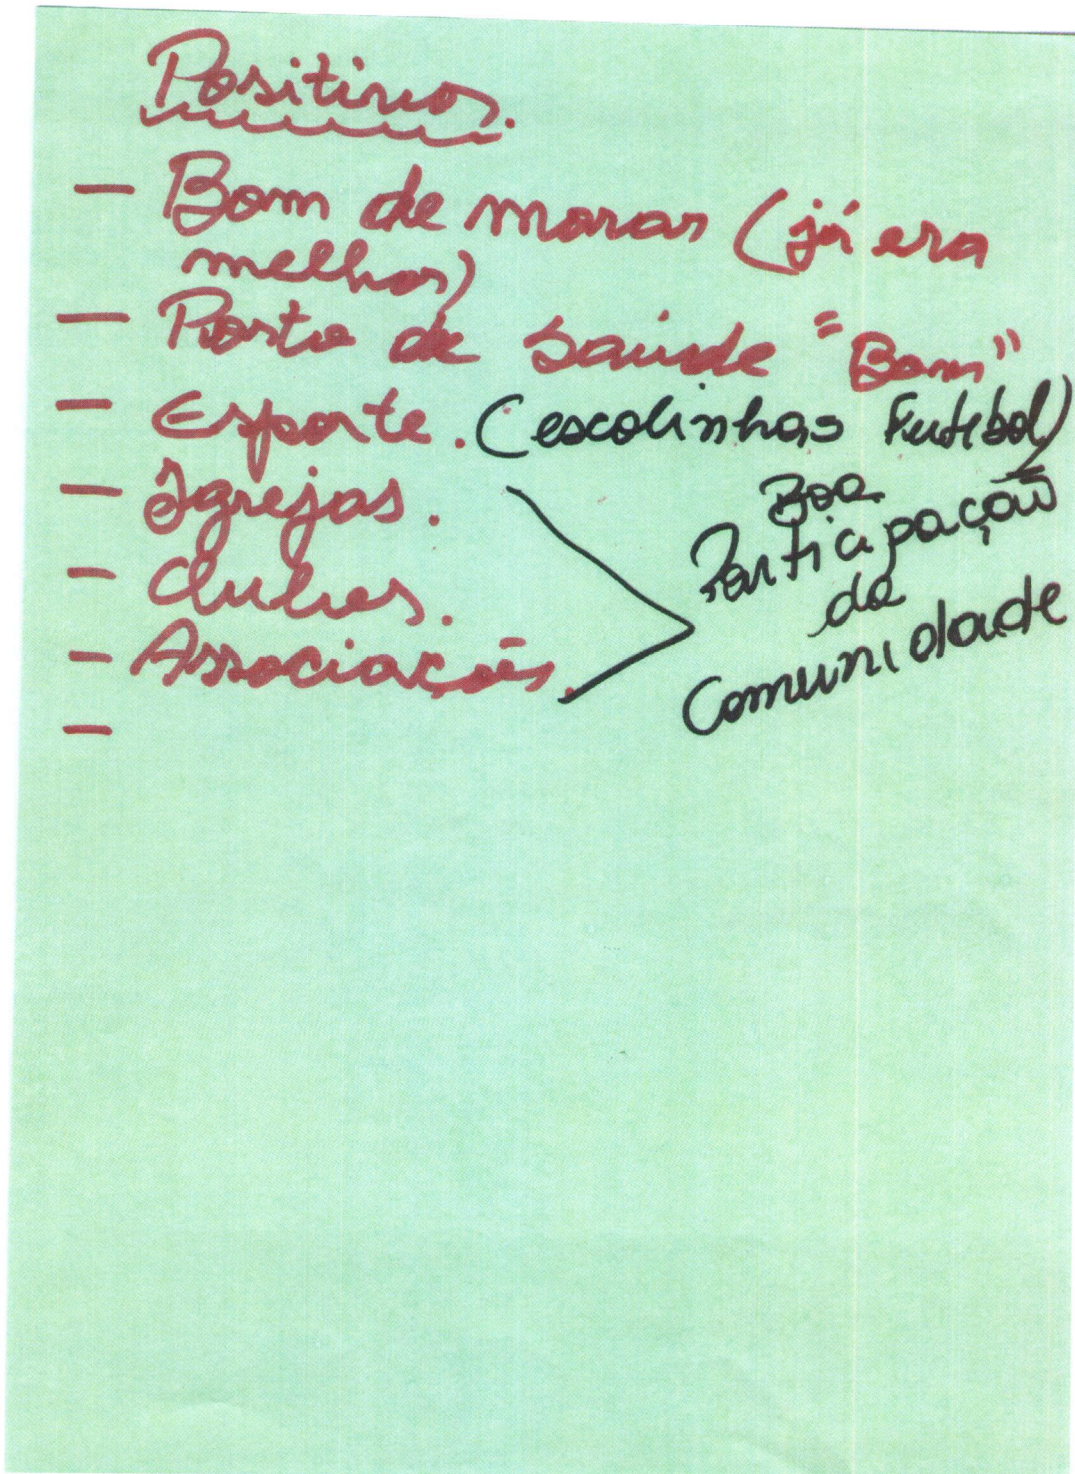 Positivos.
— Bom de morar (já era
melhor)
— Posto de saúde "Bom"
— Esporte. (escolinhas Futebol)
— Igrejas.
— Clubes.
— Associações.
—
Boa
Participação
da
Comunidade